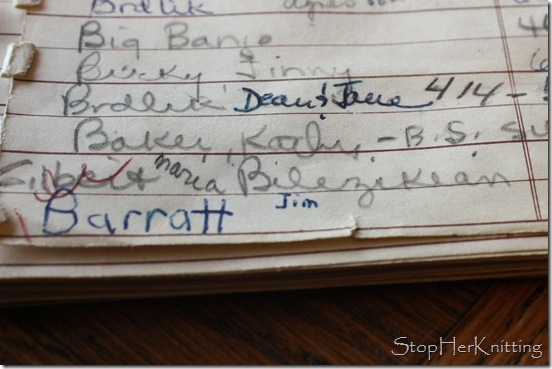 Brdlik
Big Banjo
Bucky Jinny
Brdlik Dean & Jane 414 -
Baker, Kathy, - B.S.
Maria Bilezikian
Barratt Jim
StopHerKnitting